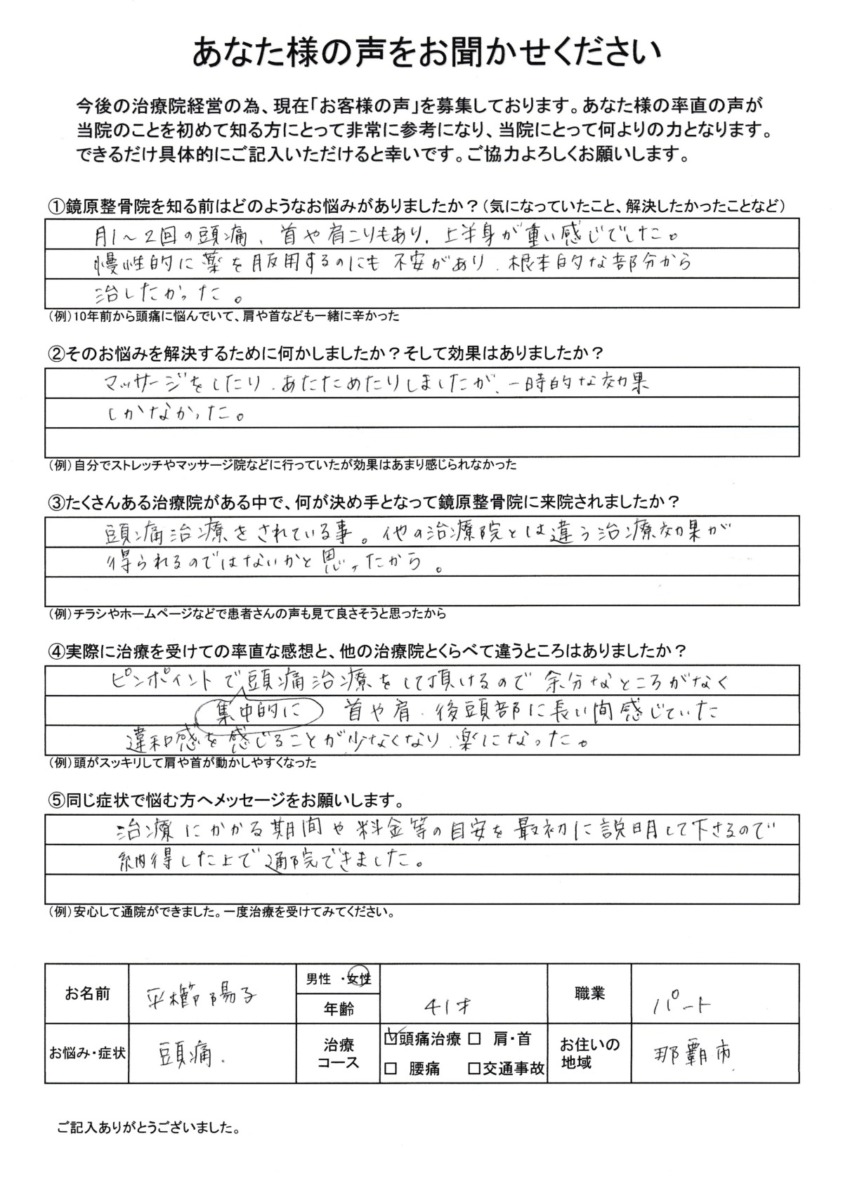 あなた様の声をお聞かせください
今後の治療院経営の為、現在「お客様の声」を募集しております。あなた様の率直の声が
当院のことを初めて知る方にとって非常に参考になり、当院にとって何よりの力となります。
できるだけ具体的にご記入いただけると幸いです。ご協力よろしくお願いします。
①鏡原整骨院を知る前はどのようなお悩みがありましたか？（気になっていたこと、解決したかったことなど）
月1～2回の頭痛、首や肩こりもあり、上半身が重い感じでした。
慢性的に薬を服用するのにも不安があり、根本的な部分から
治したかった。
（例）10年前から頭痛に悩んでいて、肩や首なども一緒に辛かった
②そのお悩みを解決するために何かしましたか？そして効果はありましたか？
マッサージをしたり、あたためたりしましたが、一時的な効果
しかなかった。
（例）自分でストレッチやマッサージ院などに行っていたが効果はあまり感じられなかった
③たくさんある治療院がある中で、何が決め手となって鏡原整骨院に来院されましたか？
頭痛治療をされている事。他の治療院とは違う治療効果が
得られるのではないかと思ったから。
（例）チラシやホームページなどで患者さんの声も見て良さそうと思ったから
④実際に治療を受けての率直な感想と、他の治療院とくらべて違うところはありましたか？
ピンポイントで頭痛治療をして頂けるので余分なところがなく
集中的に 首や肩、後頭部に長い間感じていた
違和感を感じることが少なくなり、楽になった。
（例）頭がスッキリして肩や首が動かしやすくなった
⑤同じ症状で悩む方へメッセージをお願いします。
治療にかかる期間や料金等の目安を最初に説明して下さるので
納得した上で通院できました。
（例）安心して通院ができました。一度治療を受けてみてください。
お名前 平櫛陽子 男性・女性 年齢 41才 職業 パート
お悩み・症状 頭痛. 治療コース ☑頭痛治療 □ 肩・首 □ 腰痛 □交通事故 お住いの地域 那覇市
ご記入ありがとうございました。